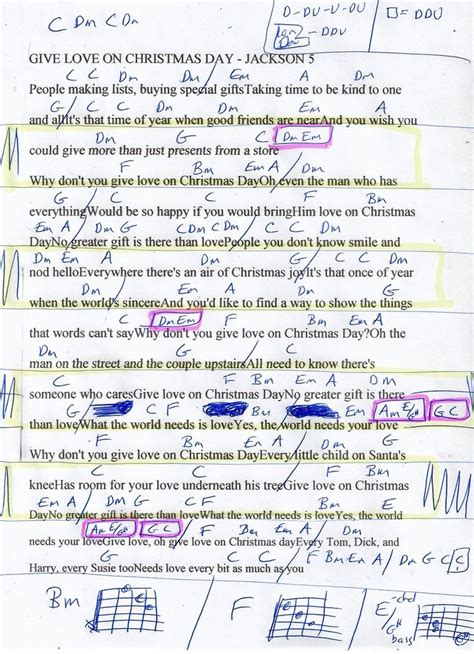 D-DU-U-DU □= DDU
C Dm C Dm
DDU
GIVE LOVE ON CHRISTMAS DAY - JACKSON 5
C C Dm Dm Em A Dm
People making lists, buying special giftsTaking time to be kind to one
G / C C Dm Dm Em A
and allIt's that time of year when good friends are nearAnd you wish you
Dm G C Dm Em
could give more than just presents from a store
F Bm Em A Dm
Why don't you give love on Christmas DayOh even the man who has
G C C F Bm
everythingWould be so happy if you would bringHim love on Christmas
Em A / Dm G C Dm C Dm / C C Dm
DayNo greater gift is there than lovePeople you don't know smile and
Dm Em A Dm G / C C Dm
nod helloEverywhere there's an air of Christmas joyIt's that once of year
Dm Em A Dm G
when the world's sincereAnd you'd like to find a way to show the things
C Dm Em F Bm Em A
that words can't sayWhy don't you give love on Christmas Day?Oh the
Dm G C
man on the street and the couple upstairsAll need to know there's
C F Bm Em A Dm
someone who caresGive love on Christmas DayNo greater gift is there
G / C F Bm Em Am E/G# G C
than loveWhat the world needs is loveYes, the world needs your love
F Bm Em A Dm G
Why don't you give love on Christmas DayEvery little child on Santa's
C C F Bm
kneeHas room for your love underneath his treeGive love on Christmas
Em A / Dm G C F Bm E
DayNo greater gift is there than loveWhat the world needs is loveYes, the world
Am E/G# G C F Bm Em A
needs your loveGive love, oh give love on Christmas dayEvery Tom, Dick, and
Dm G C F Bm Em A / Dm G C C
Harry, every Susie tooNeeds love every bit as much as you
Bm F E/G# bass